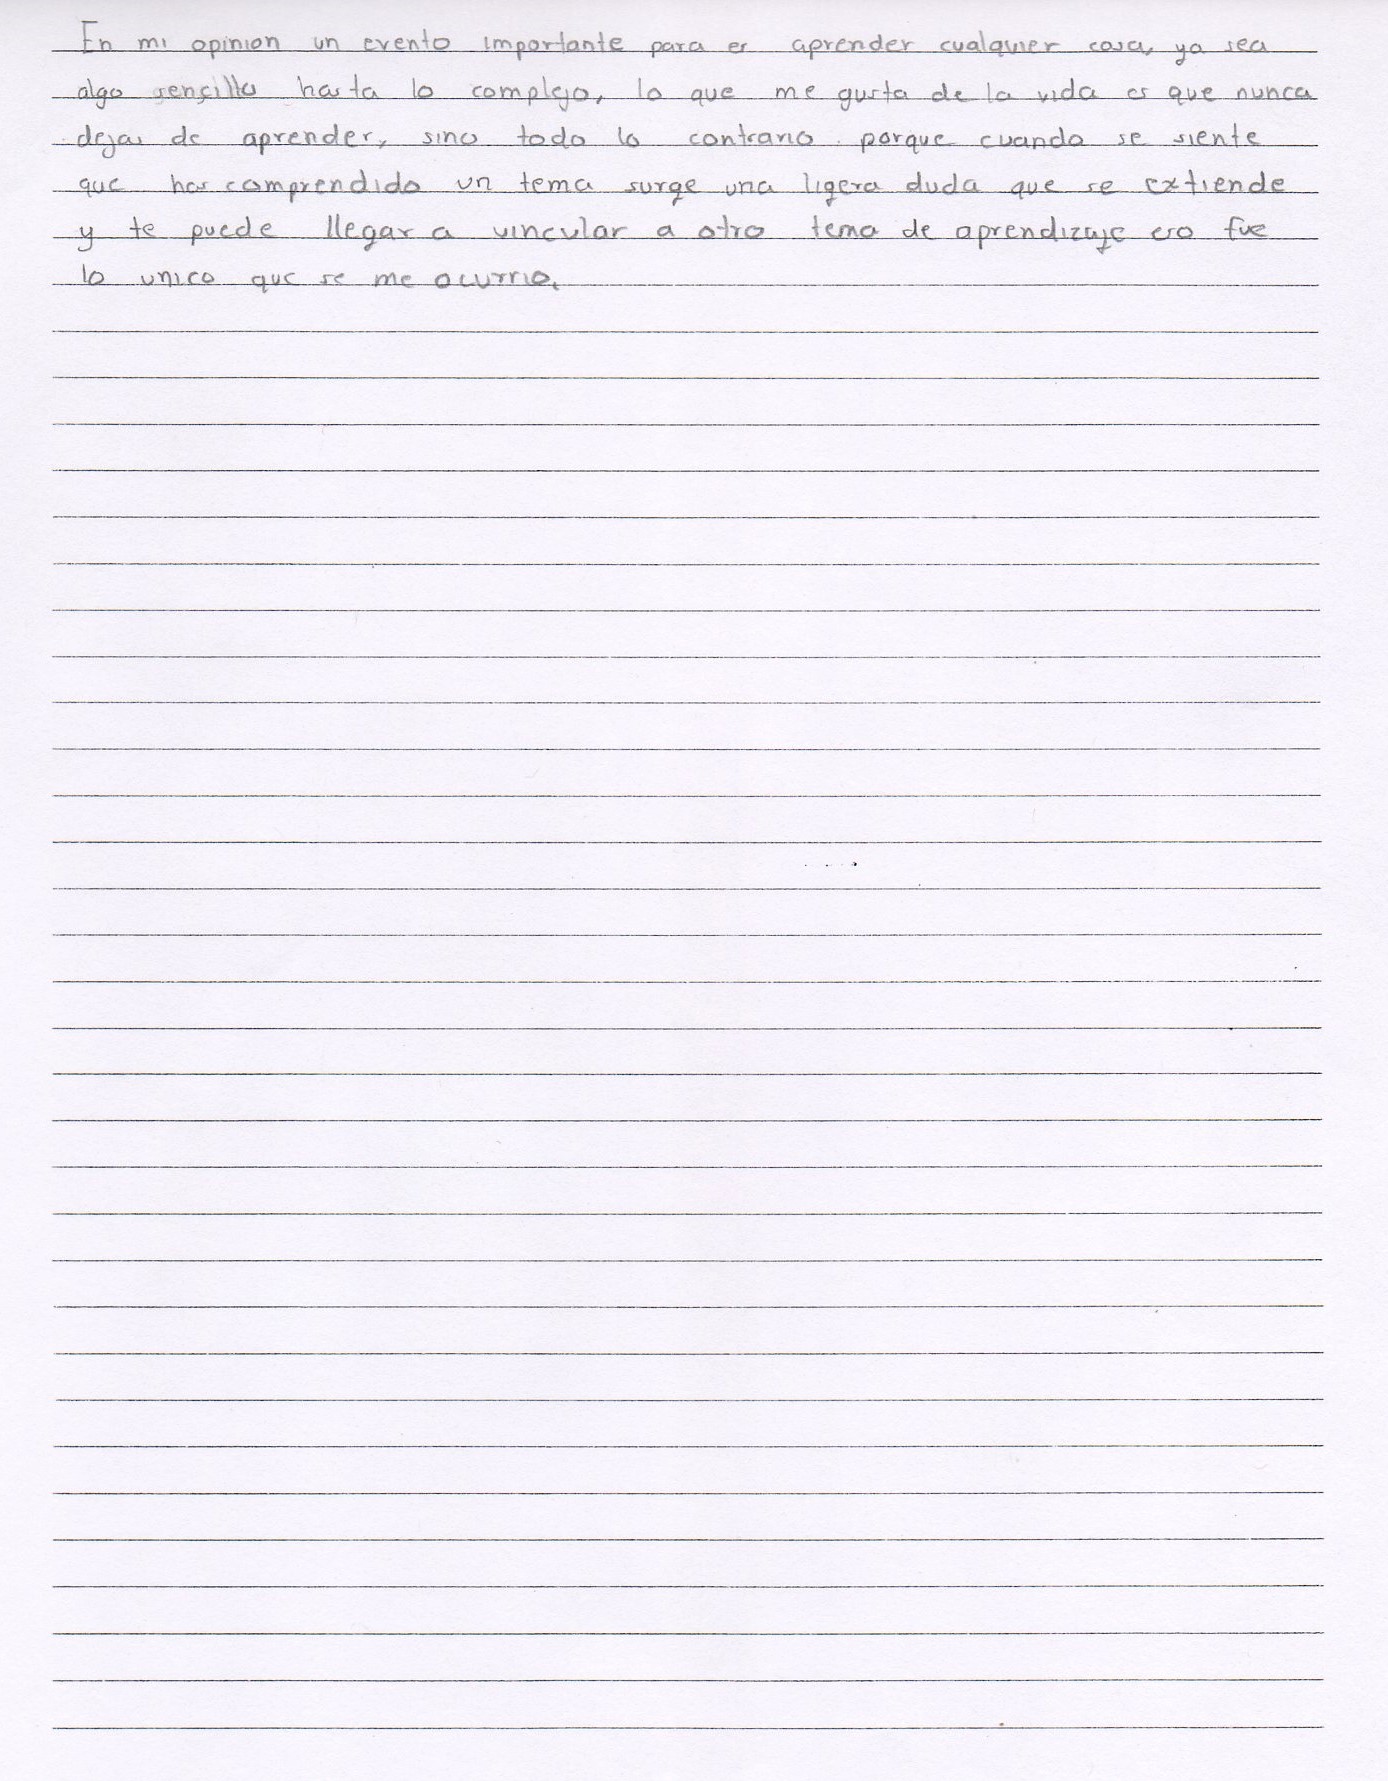 En mi opinion un evento importante para es aprender cualquier cosa, ya sea
algo sencillo hasta lo complejo, lo que me gusta de la vida es que nunca
dejas de aprender, sino todo lo contrario porque cuando se siente
que has comprendido un tema surge una ligera duda que se extiende
y te puede llegar a vincular a otro tema de aprendizaje eso fue
lo unico que se me ocurrio.